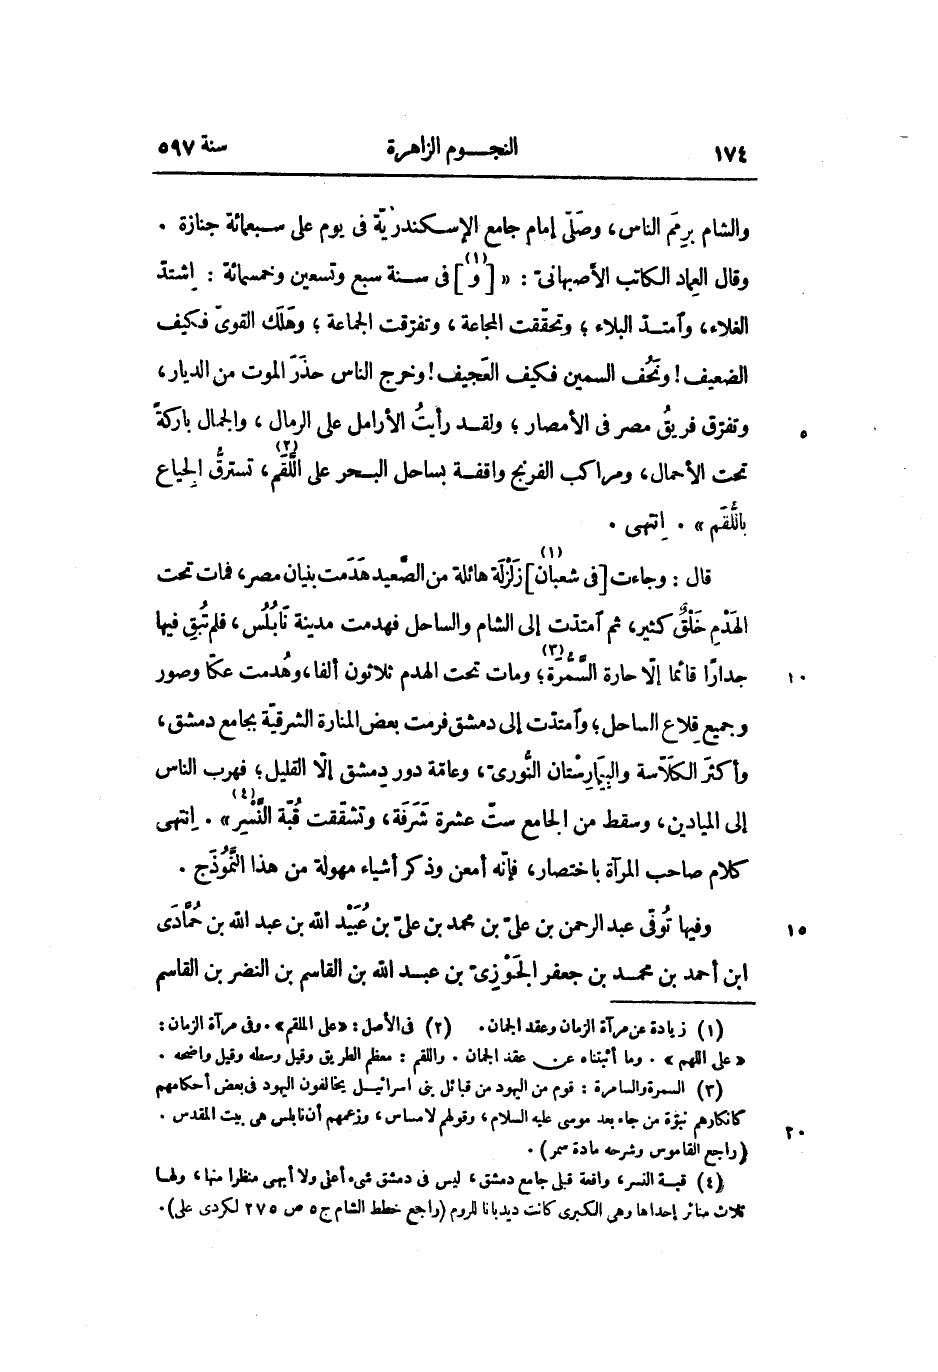 ١٧٤ النجـــوم الزاهرة سنة ٥٩٧
والشام بِرِمَم الناس، وصَلّى إمام جامع الإسكندريّة فى يوم على سبعمائة جنازة .
وقال العماد الكاتب الأصبهانىّ : « [و](١) فى سنة سبع وتسعين وخمسمائة : اِشتدّ
الغلاء، وآمتدّ البلاء ؛ وتحقّقت المجاعة ، وتفرّقت الجماعة ؛ وهَلَك القوىّ فكيف
الضعيف ! ونَحُف السمين فكيف العَجيف ! وخرج الناس حذَرَ الموت من الديار،
وتفرّق فريقُ مصر فى الأمصار ؛ ولقد رأيتُ الأرامل على الرمال ، والجمال باركةً ٥
تحت الأحمال، ومراكب الفرنج واقفة بساحل البحر على اللَّقَم(٢)، تسترقّ الجياع
باللُّقَم » . اِنتهى .
قال : وجاءت [فى شعبان](١) زَلْزَلة هائلة من الصَّعيد هَدَمت بنيان مصر، فمات تحت
الهَدْم خَلْقٌ كثير، ثم آمتدّت إلى الشام والساحل فهدمت مدينة نَابُلُس، فلم تُبقِ فيها
جدارًا قائما إلّا حارة السَّمُرة(٣)؛ ومات تحت الهدم ثلاثون ألفا، وهُدمت عكّا وصور ١٠
وجميع قِلاع الساحل؛ وآمتدّت إلى دمشق فرمت بعض المنارة الشرقيّة بجامع دمشق،
وأكثرَ الكَلّاسة والبِيمَارِسْتان النُّورىّ، وعامّة دور دِمشق إلّا القليل؛ فهرب الناس
إلى الميادين، وسقط من الجامع ستّ عشرة شَرَفَة، وتشقّقت قُبّة النَّسْر(٤)» . اِنتهى
كلام صاحب المرآة باختصار، فإنّه أمعن وذكر أشياء مهولة من هذا النَّمُوذَج .
وفيها تُوفّى عبد الرحمن بن علىّ بن محمد بن علىّ بن عُبَيْد الله بن عبد الله بن حُمَّادَى ١٥
ابن أحمد بن محمد بن جعفر الجَوْزِىّ بن عبد الله بن القاسم بن النضر بن القاسم
(١) زيادة عن مرآة الزمان وعقد الجمان. (٢) فى الأصل : «على الملقم» . وفى مرآة الزمان :
« على اللهم » . وما أثبتناه عن عقد الجمان . واللقم : معظم الطريق وقيل وسطه وقيل واضحه .
(٣) السمرة والسامرة : قوم من اليهود من قبائل بنى اسرائيل يخالفون اليهود فى بعض أحكامهم
كانكارهم نبوّة من جاء بعد موسى عليه السلام، وقولهم لا مساس، وزعمهم أن نابلس هى بيت المقدس . ٢٠
(راجع القاموس وشرحه مادة سمر) .
(٤) قبة النسر، واقعة قبلى جامع دمشق، ليس فى دمشق شىء أعلى ولا أبهى منظرا منها، ولها
ثلاث منائر إحداها وهى الكبرى كانت ديدبانا للروم (راجع خطط الشام ج ٥ ص ٢٧٥ لكردى على).